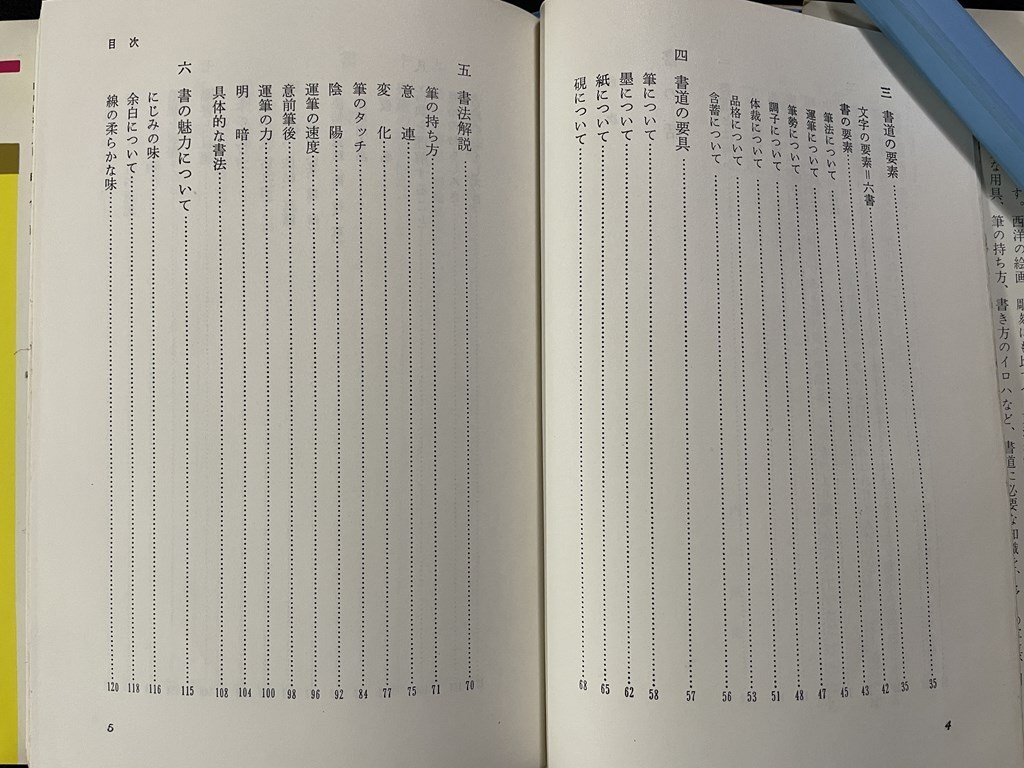 す。西洋の絵画
な用具、筆の持ち方、書き方のイロハなど、書道に必要な知識を、
三 書道の要素……35
文字の要素＝六書……35
書の要素……42
筆法について……43
運筆について……45
筆勢について……47
調子について……48
体裁について……51
品格について……53
含蓄について……56
四 書道の要具……57
筆について……58
墨について……62
紙について……65
硯について……68
4
目次
五 書法解説……70
筆の持ち方……71
意連……75
変化……77
筆のタッチ……84
陰陽……92
運筆の速度……96
意前筆後……98
運筆の力……100
明暗……104
具体的な書法……108
六 書の魅力について……115
にじみの味……116
余白について……118
線の柔らかな味……120
5